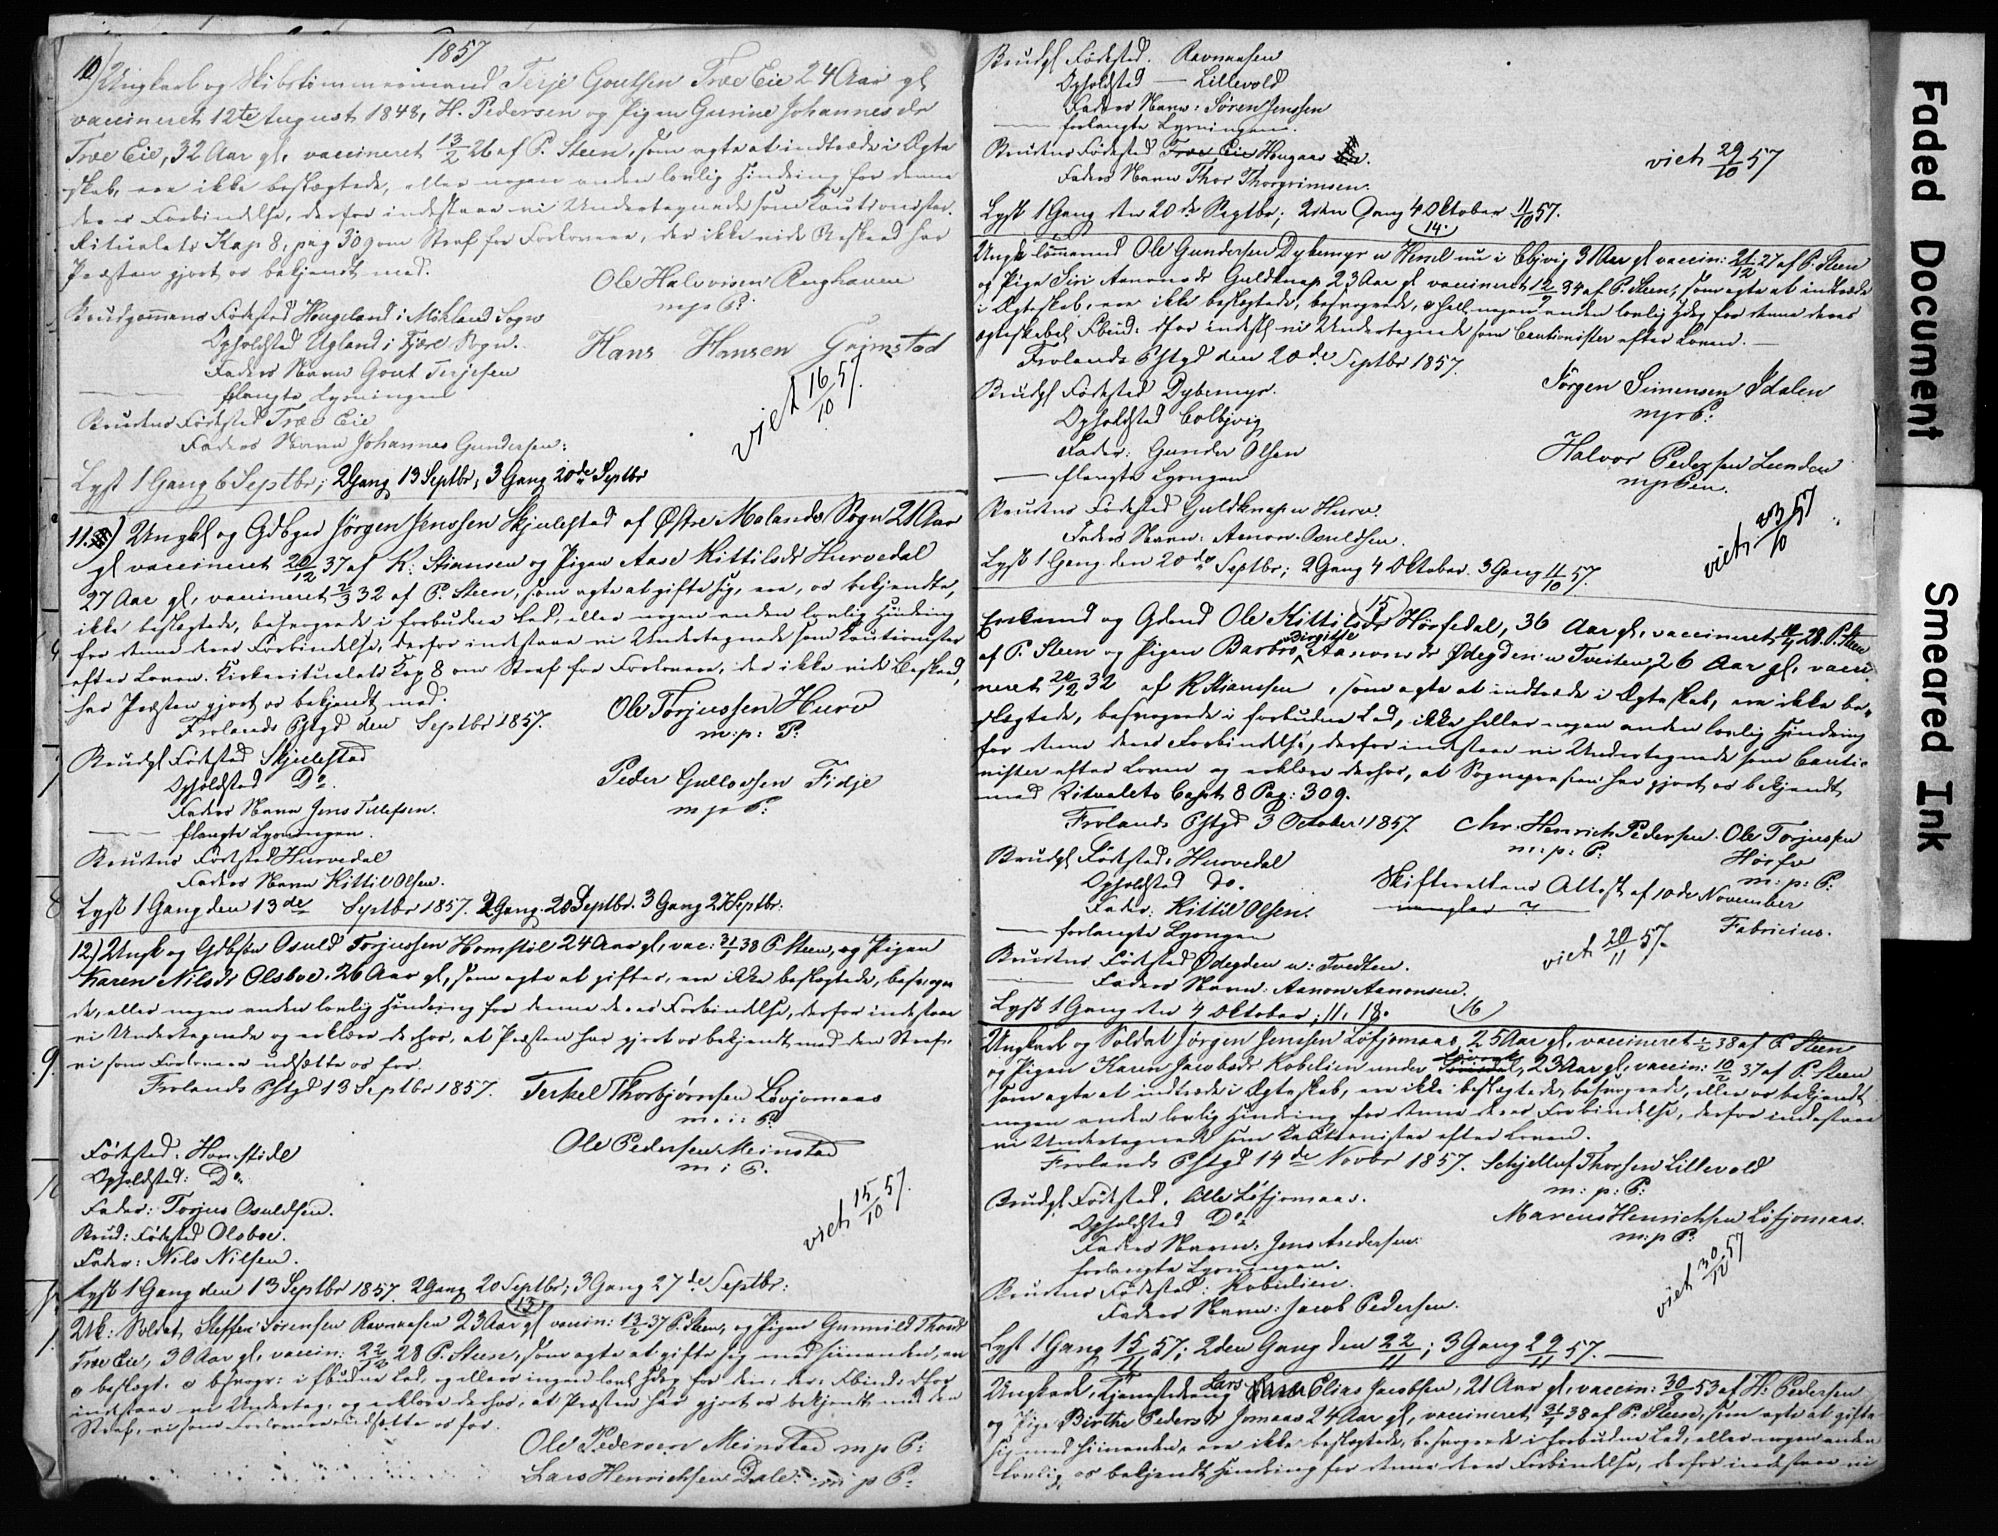 1857
10) Ungkarl og Skibstømmermand Terje Goutsen Træe Eie 24 Aar gl
vaccineret 12te August 1848, H. Pedersen og Pigen Gurine Johannesdr
Træe Eie, 32 Aar gl, vaccineret 13/2 26 af P. Steen, som agte at indtræde i Ægte
skab, ere ikke beslægtede, eller nogen anden lovlig Hindring for denne
deres Forbindelse, derfor indestaae vi Undertegnede som Cautionister.
Ritualets Kap 8, pag 309 om Straf for Forlovere, der ikke vide Beskeed har
Præsten gjort os bekjendt med.
Ole Halvorsen Reghaven
m p P:
Brudgommens Fødested Hougeland i Mökland Sogn
Opholdsted Ugland i Fjære Sogn.
Hans Hansen Grimstad
Faders Navn Gout Terjesen
flangte Lysningen
viet 16/10 57.
Brudens Fødested Træe Eie
Faders Navn Johannes Gundersen:
Lyst 1 Gang 6 Septbr; 2 Gang 13 Septbr; 3 Gang 20de Septbr
11.) Ungkl og Gdbgr Jørgen Jenssen Skjulestad af Østre Molands Sogn 21 Aar
gl vaccineret 20/12 37 af K: Stiansen og Pigen Aase Kittilsdr Hurvedal
27 Aar gl, vaccineret 2/3 32 af P. Steen, som agte at gifte sig, ere, os bekjendte,
ikke beslægtede, besvogrede i forbudne Led, eller nogen anden lovlig Hindring
for denne deres Forbindelse, derfor indestaae vi Undertegnede som Cautionister
efter Loven. Kirkeritualets Kap 8 om Straf for Forlovere, der ikke vide Beskeed,
har Præsten gjort os bekjendt med.
Frolands Pstgd den Septbr 1857.
Ole Torjussen Hurv
m: p: P:
Brudgl Fødested Skjulestad
Opholdsted Do.
Peder Gulløvsen Fidje
m p P:
Faders Navn Jens Tellefsen.
flangte Lysningen.
Brudens Fødested Hurvedal
Faders Navn Kittil Olsen.
Lyst 1 Gang den 13de Septbr 1857. 2 Gang 20 Septbr. 3 Gang 27 Septbr:
12) Ungk og Gdbsøn Osuld Torjussen Homstöl 24 Aar gl, vac: 31/1 38 P. Steen, og Pigen
Karen Nilsdr Olsboe. 26 Aar gl, som agte at giftes, ere ikke beslægtede, besvogre
de, eller nogen anden lovlig Hindring for denne deres Forbindelse, derfor indestaae
vi Undertegnede og erklære derhos, at Præsten har gjort os bekjendt med den Straf,
vi som Forlovere udsætte os for.
Frolands Pstgd 13 Septbr 1857.
Terkel Thorbjørnsen Lövjomaas
m: p: P:
Ole Pedersen Meinstad
m p P.
Fødested: Homstöl
Opholdsted: Do
Fader: Torjus Osuldsen.
viet 15/10 57.
Brud: Fødested Olsboe.
Fader: Nils Nilsen.
Lyst 1 Gang den 13 Septbr 1857. 2 Gang 20 Septbr; 3 Gang 27de Septbr:
13
Uk: Soldat, Steffen Sørensen Ravnaasen 23 Aar gl vaccin: 13/2 37 P. Steen, og Pigen Gunnild Thorsdr
Træe Eie, 30 Aar gl, vaccin: 22/12 28 P. Steen, som agte at gifte sig med hinanden, ere
indstaae vi Underteg. og erklære derhos, at Præsten har gjort os bekjendt med den
Straf, vi som Forlovere udsætte os for.
Ole Pedersen Meinstad m p P:
Lars Henrichsen Dale: m p P:
Brudgl Fødested. Ravnaasen
Opholdsted — Lillevold
Faders Navn: Sören Jenssen
forlangte Lysningen.
Brudens Fødested Træe Eie Hougaas
viet 29/10 57
Faders Navn Thor Thorgrimsen.
Lyst 1 Gang den 20de Septbr; 2den Gang 4 Oktober 11/10 57.
14.
Ungk tömmermd Ole Gundersen Dybemyr u Hessel nu i Colbjvig 31 Aar gl vaccin: 21/12 27 af P. Steen
og Pige Siri Aanonsdr Guldknap 23 Aar gl vaccineret 12/9 34 af P. Steen, som agte at indtræde
i Ægteskab, ere ikke beslægtede, besvogrede, ei hell. nogen anden lovlig Hdg for denne deres
ægteskabel Fbind: dfor indest. vi Undertegnede som Cautionister efter Loven. —
Frolands Pstgd den 20de Septbr 1857.
Jörgen Simensen Idalen
m p P:
Brudgl Fødested Dybemyr.
Opholdsted Colbjvig
Fader: Gunder Olsen
flangte Lysngen
Halvor Pedersen Lunden
m p Pen.
Brudens Fødested Guldknap u Hurv.
Faders Navn: Aanon Osuldsen.
viet 23/10 57
Lyst 1 Gang den 20de Septbr; 2 Gang 4 Oktober. 3 Gang 11/10 57.
15
Enkemd og Gdmd Ole Kittilsen Hörfedal, 36 Aar gl, vaccineret 28. P. Steen
af P. Steen og Pigen Barbro Birgitte Aanonsdr Ødegden u Tveiten, 26 Aar gl, vacci
neret 20/12 32 af K Stianssen, som agte at indtræde i Ægteskab, ere ikke be-
slægtede, besvogrede i forbudne Led, ikke heller nogen anden lovlig Hindring
for denne deres Forbindelse, derfor indestaae vi Undertegnede som Cautio-
nister efter Loven og erklære derhos, at Sognepræsten har gjort os bekjendt
med Ritualets Capt 8 Pag: 309.
Frolands Pstgd 3 October 1857.
Chr. Henrich Pedersen. Ole Torjussen
m: p: P: Hörfve
m: p: P:
Brudgl Fødested. Hurvedal
Opholdsted Do.
Skifterettens Attest af 10de November
mangler ?
Fabricius.
Fader: Kittil Olsen.
forlangte Lysngen
viet 20/11 57.
Brudens Fødested Ødegden u: Tvedten.
Faders Navn: Aanon Aanonsen.
Lyst 1 Gang den 4 Oktober, 11, 18.
16
Ungkarl og Soldat Jörgen Jenssen Løfjomaas, 25 Aar gl, vaccineret 38 af P. Steen
og Pigen Karen Jacobsdr Robilien under 23 Aar gl, vaccin: 10/2 37 af P. Steen
som agte at indtræde i Ægteskab, ere ikke beslægtede, besvogrede, eller os bekjendt
nogen anden lovlig Hindring for denne deres Forbindelse, derfor indestaae
vi Undertegnede som Cautionister efter Loven.
Frolands Pstgd 14de Novbr 1857. Schjelluf Thorsen Lillevold
m: p: P:
Brudgl Fødested. Lille Løfjomaas.
Opholdsted Do
Marcus Henrichsen Løfjomaas.
m: p P.
Faders Navn: Jens Andersen.
forlangte Lysningen.
viet 30/12 57
Brudens Fødested: Robilien.
Faders Navn: Jacob Pedersen.
Lyst 1 Gang 15/11 57; 2den Gang den 22/11; 3 Gang 29/11 57. —
17
Ungkarl, Tjenestedreng Lars Elias Jacobsen, 21 Aar gl, vaccin: 30/9 53 af H: Pedersen
og Pige Birthe Pedersdr Jomaas 24 Aar gl, vaccineret 31/1 38 af P. Steen, som agte at gifte
sig med hinanden, ere ikke beslægtede, besvogrede i forbudne Led, eller nogen anden
lovlig os bekjendt Hindring for denne deres Forbindelse, derfor indestaae vi
Faded Document
Smeared Ink